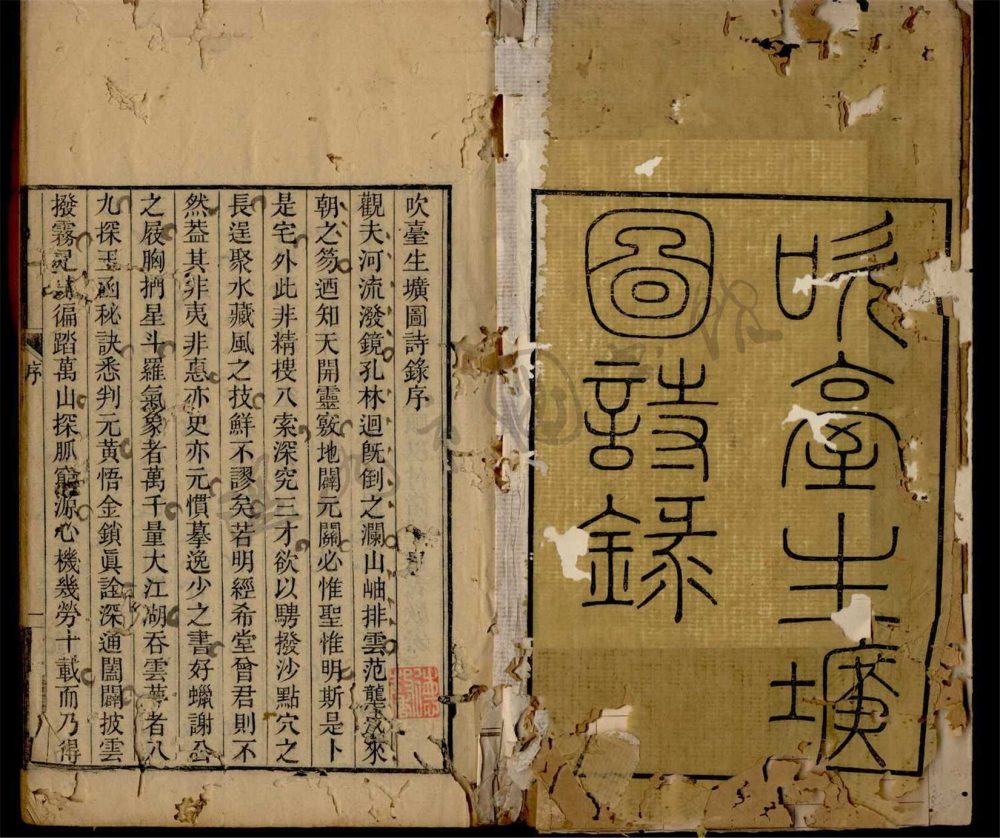 吹臺生壙
圖詩錄
吹臺生壙圖詩錄序
觀夫河流潑鏡孔林迴旣倒之瀾山岫排雲范壟咸來
朝之笏迺知天開靈竅地闢元關必惟聖惟明斯是卜
是宅外此非精搜八索深究三才欲以騁撥沙點穴之
長逞聚水藏風之技鮮不謬矣若明經希堂曾君則不
然葢其非夷非惠亦史亦元慣摹逸少之書好蠟謝公
之屐胸捫星斗羅氣象者萬千量大江湖吞雲夢者八
九探玉函秘訣悉判元黃悟金鎖眞詮深通闔闢披雲
撥霧足徧踏萬山探脈窮源心機幾勞十載而乃得
序
一